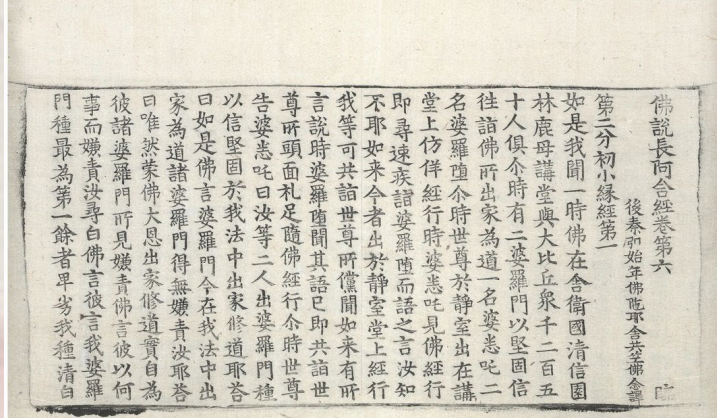 佛說長阿含經卷第六 臨
後秦弘始年佛陁耶舍共竺佛念譯
第二分初小緣經第一
如是我聞一時佛在舍衛國清信園
林鹿母講堂與大比丘衆千二百五
十人俱尒時有二婆羅門以堅固信
往詣佛所出家為道一名婆悉吒二
名婆羅墮尒時世尊於靜室出在講
堂上仿佯經行時婆悉吒見佛經行
即尋速疾詣婆羅墮而語之言汝知
不耶如來今者出於靜室堂上經行
我等可共詣世尊所儻聞如來有所
言說時婆羅墮聞其語已即共詣世
尊所頭面札足隨佛經行尒時世尊
告婆悉吒曰汝等二人出婆羅門種
以信堅固於我法中出家修道耶荅
曰如是佛言婆羅門今在我法中出
家為道諸婆羅門得無嫌責汝耶荅
曰唯然蒙佛大恩出家修道實自為
彼諸婆羅門所見嫌責佛言彼以何
事而嫌責汝尋白佛言彼言我婆羅
門種最為第一餘者卑劣我種清白